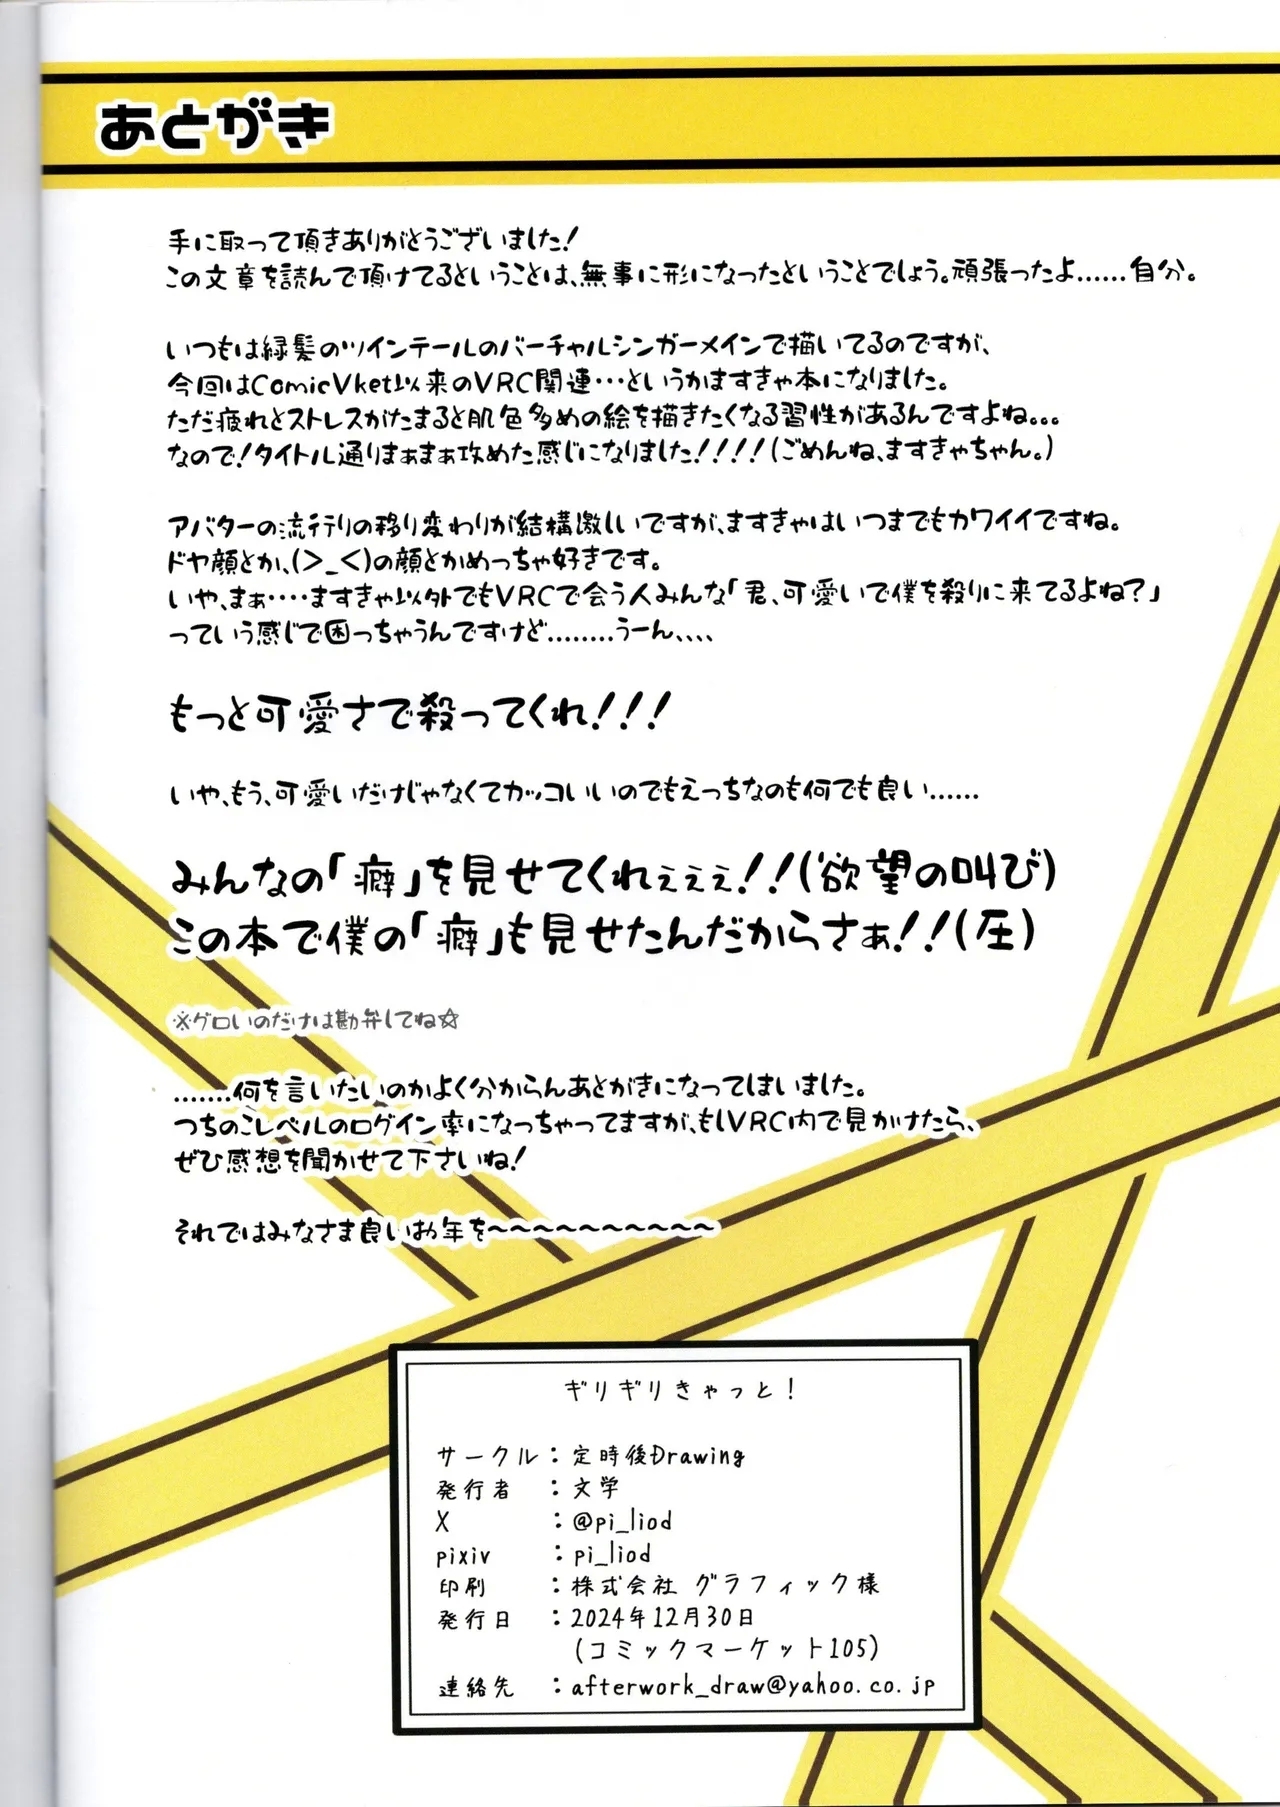 あとがき
手に取って頂きありがとうございました！
この文章を読んで頂けてるということは、無事に形になったということでしょう。頑張ったよ......自分。
いつもは緑髪のツインテールのバーチャルシンガーメインで描いてるのですが、
今回はComicVket以来のVRC関連…というかますきゃ本になりました。
ただ疲れとストレスがたまると肌色多めの絵を描きたくなる習性があるんですよね。。。
なので！タイトル通りまぁまぁ攻めた感じになりました！！！！（ごめんね、ますきゃちゃん。）
アバターの流行りの移り変わりが結構激しいですが、ますきゃはいつまでもカワイイですね。
ドヤ顔とか、(＞_＜)の顔とかめっちゃ好きです。
いや、まぁ････ますきゃ以外でもVRCで会う人みんな「君、可愛いで僕を殺りに来てるよね？」
っていう感じで困っちゃうんですけど........うーん、、、、
もっと可愛さで殺ってくれ！！！
いや、もう、可愛いだけじゃなくてカッコいいのでもえっちなのも何でも良い......
みんなの「癖」を見せてくれぇぇぇ！！（欲望の叫び）
この本で僕の「癖」も見せたんだからさぁ！！（圧）
※グロいのだけは勘弁してね☆
.......何を言いたいのかよく分からんあとがきになってしまいました。
つちのこレベルのログイン率になっちゃってますが、もしVRC内で見かけたら、
ぜひ感想を聞かせて下さいね！
それではみなさま良いお年を～～～～～～～～～～
ギリギリきゃっと！
サークル：定時後Drawing
発行者：文学
X：@pi_liod
pixiv：pi_liod
印刷：株式会社 グラフィック様
発行日：2024年12月30日
（コミックマーケット105）
連絡先：afterwork_draw@yahoo.co.jp